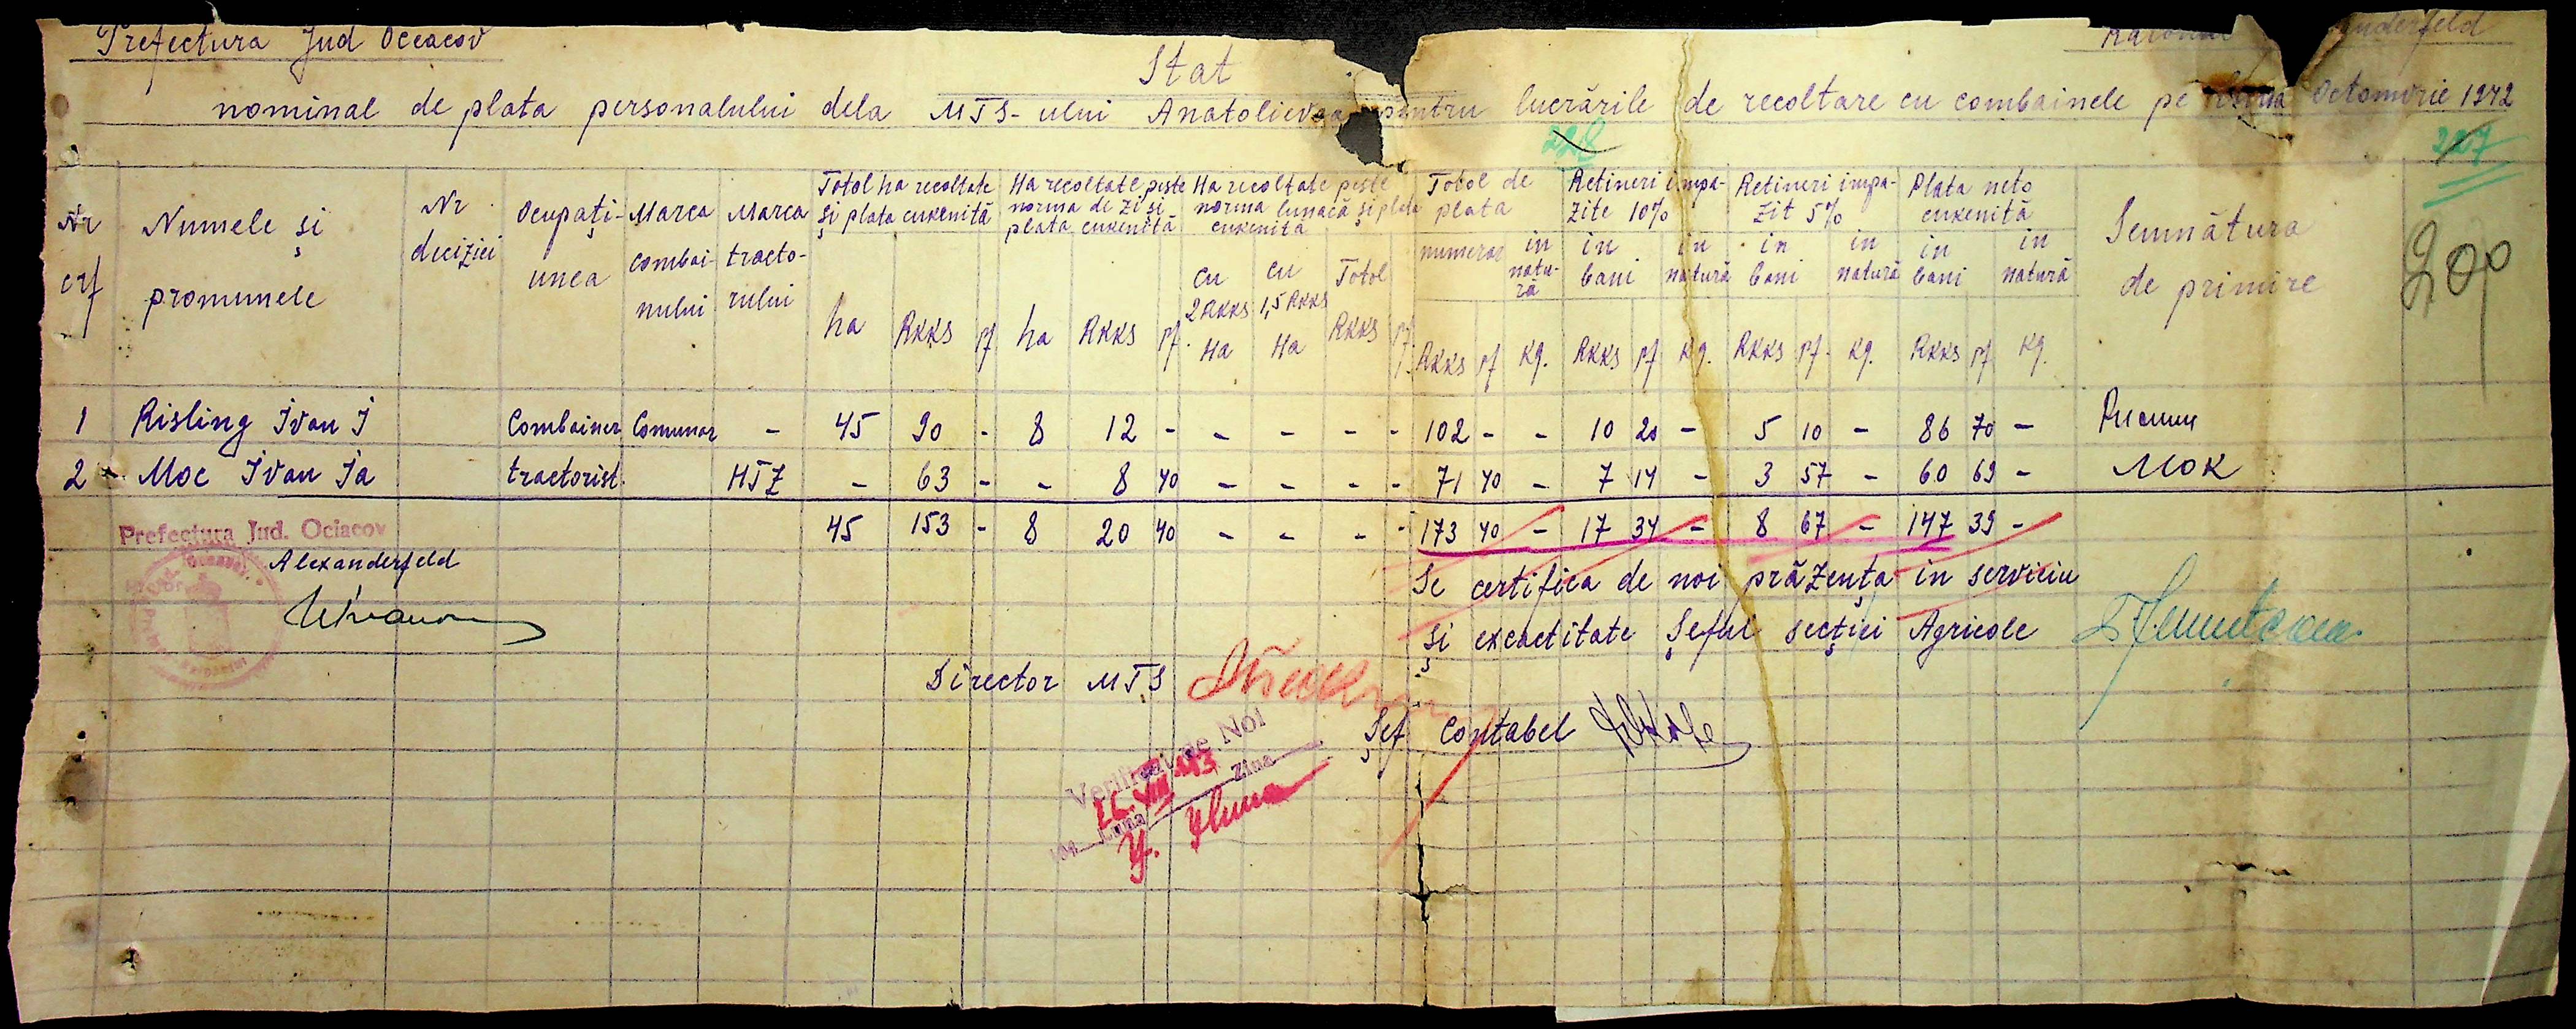 Prefectura Jud Oceacov
Raionul anderfeld
Stat
nominal de plata personalului dela MTS-ului Anatolievca pentru lucrările de recoltare cu combainele pe luna Octomvrie 1942
228
227
200
Nr crf
Numele și promunele
Nr deciziei
Ocupați-unea
Marca combai-nului
Marca tracto-rului
Totol ha recoltate și plata cuvenită
ha Rkks pf
Ha recoltate peste norma de zi și plata cuvenită
ha Rkks pf
Ha recoltate peste norma lunacă și plata cuvenita
cu 2 Rkks Ha
cu 1,5 Rkks Ha
Totol Rkks pf.
Totol de plata
numerar Rkks pf
in natu-ră kg.
Retineri impa-zite 10%
in bani Rkks pf
in natură kg.
Retineri impa-zit 5%
in bani Rkks pf.
in natură kg.
Plata neto cuvenită
in bani Rkks pf
in natură kg.
Semnătura de primire
1 Risling Ivan I Combainer Comunar - 45 90 - 8 12 - - - - - 102 - - 10 20 - 5 10 - 86 70 -
2 Moc Ivan Ia tractorist. HTZ - 63 - - 8 40 - - - - 71 40 - 7 14 - 3 57 - 60 69 - Мок
45 153 - 8 20 40 - - - - 173 40 - 17 34 - 8 67 - 147 39 -
Prefectura Jud. Ociacov
Alexanderfeld
Se certifica de noi prăzența in serviciu
și excactitate Șeful secției Agricole
Director MTS
Șef Contabel
Verificat de Noi
Luna Ziua